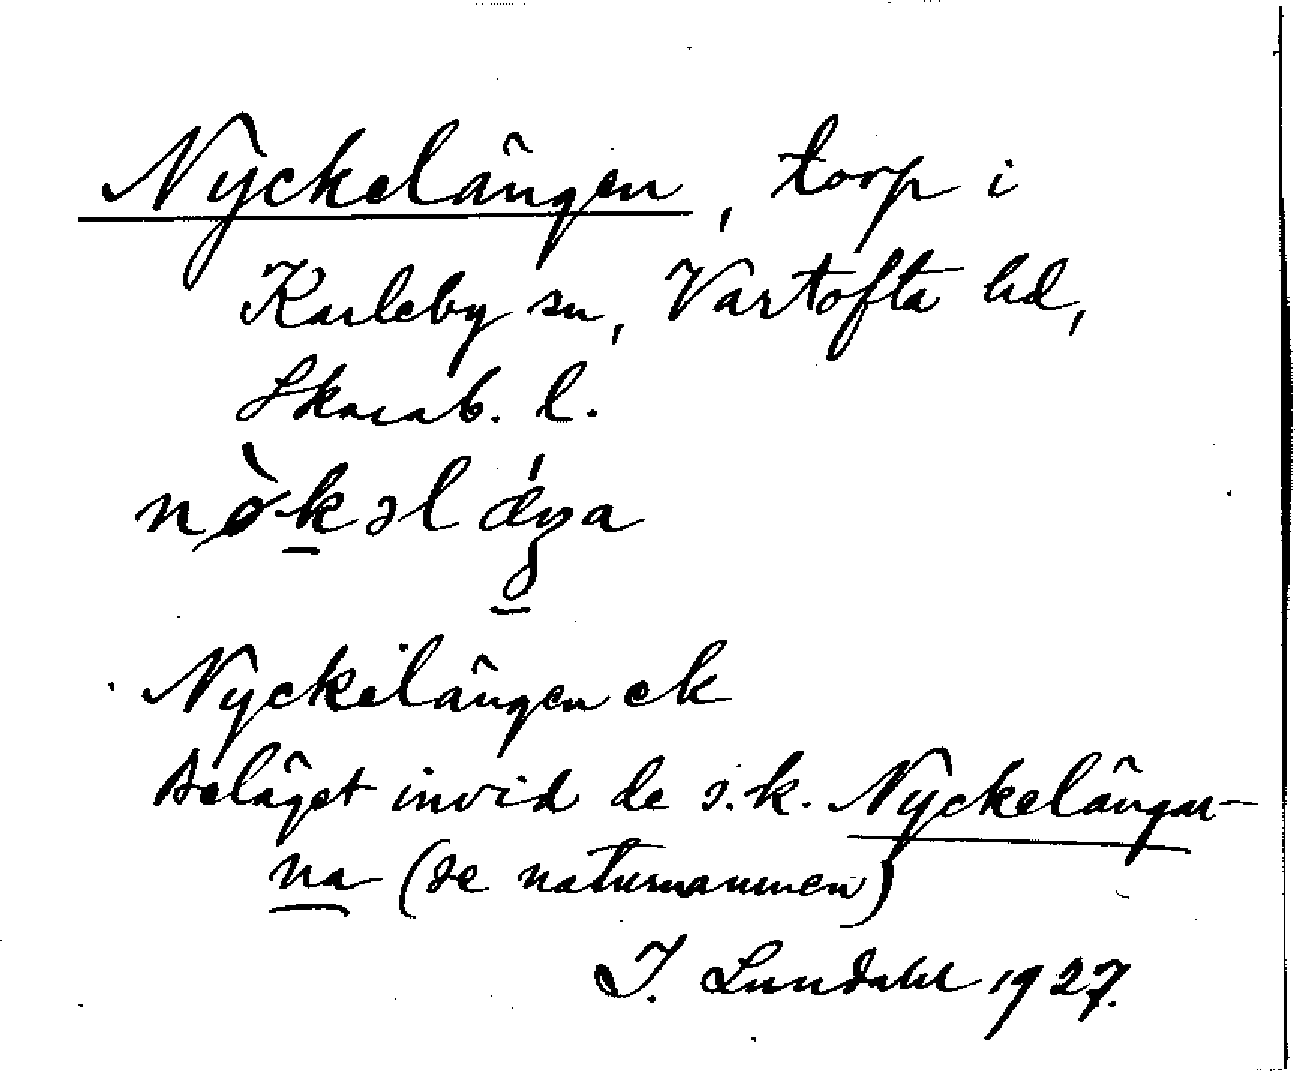 Nyckelängen, torp i
Karleby sn, Vartofta hd,
Skarab. l.
nø̀kəlǽŋa
Nyckelängen ek
Beläget invid de s.k. Nyckelängar-
na (se naturnamnen)
I. Lundahl 1927.